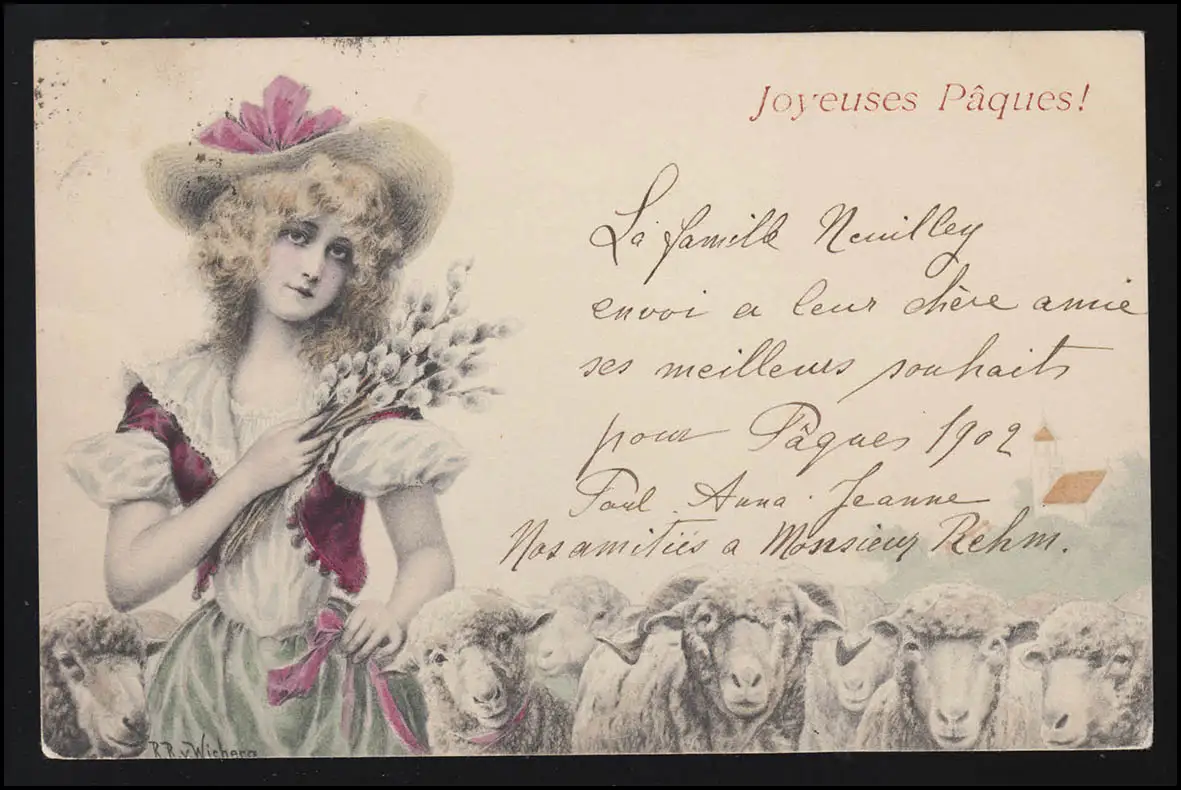 Joyeuses Pâques!
La famille Neuilley
envoi a leur chère amie
ses meilleurs souhaits
pour Pâques 1902
Paul. Anna. Jeanne
Nos amitiés a Monsieur Rehm.
R.R.v.Wichera